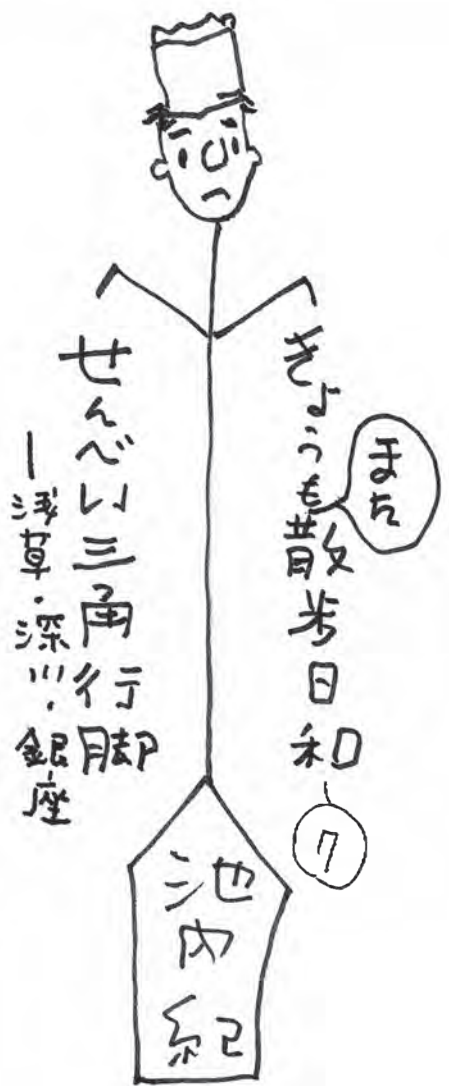 きょうも散歩日和
また
7
せんべい三角行脚
―浅草・深川・銀座
池内紀